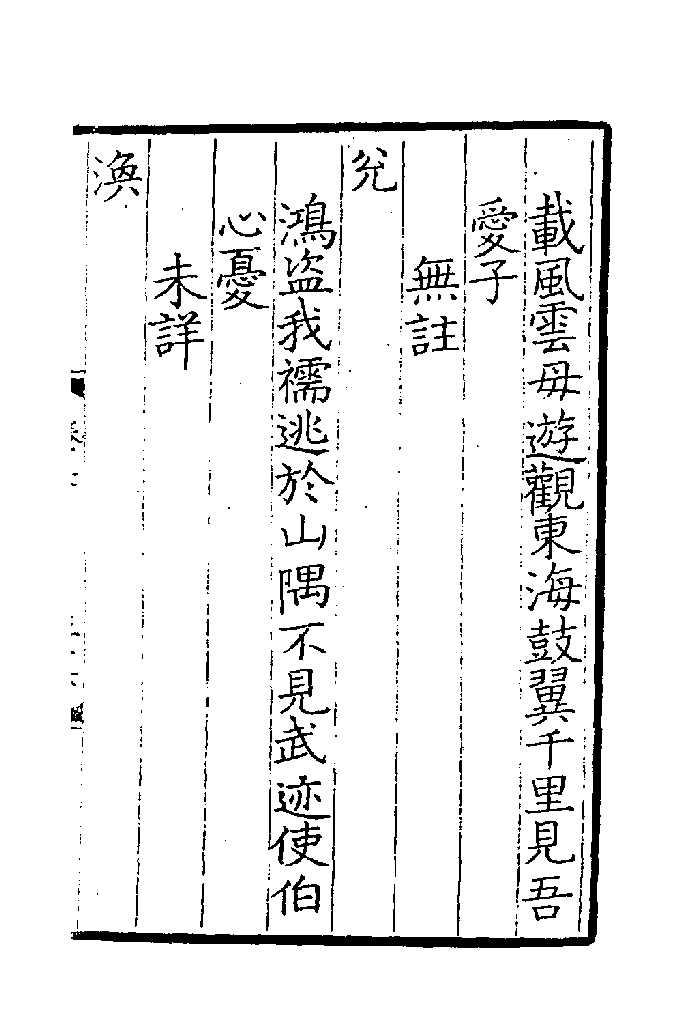 載風雲母遊觀東海鼓翼千里見吾
愛子
無註
兊
鴻盗我襦逃於山隅不見武迹使伯
心憂
未詳
渙